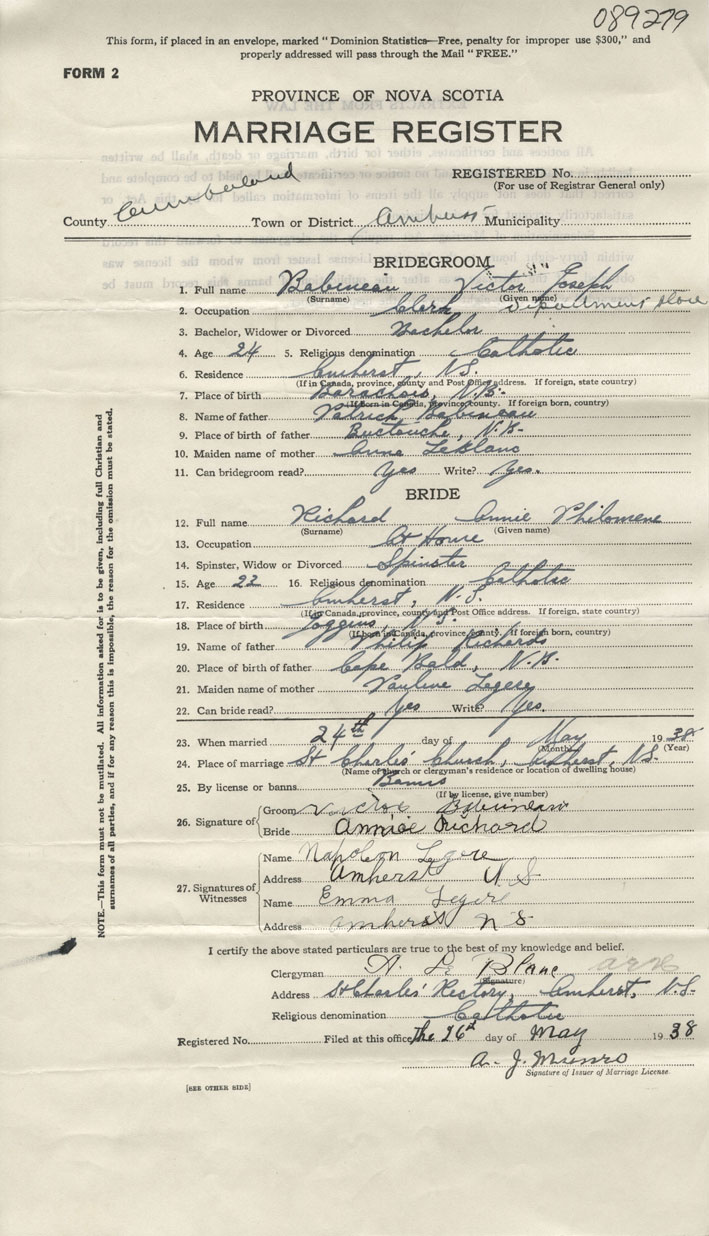 089279
This form, if placed in an envelope, marked "Dominion Statistics—Free, penalty for improper use $300," and
properly addressed will pass through the Mail "FREE."
FORM 2
PROVINCE OF NOVA SCOTIA
MARRIAGE REGISTER
REGISTERED No.
(For use of Registrar General only)
County Cumberland Town or District Amherst Municipality
BRIDEGROOM
1. Full name Babineau Victor Joseph
(Surname) (Given name)
2. Occupation Clerk Department Store
3. Bachelor, Widower or Divorced Bachelor
4. Age 24 5. Religious denomination Catholic
6. Residence Amherst, N.S.
(If in Canada, province, county and Post Office address. If foreign, state country)
7. Place of birth Barachois, N.B.
(If born in Canada, province, county. If foreign born, country)
8. Name of father Patrick Babineau
9. Place of birth of father Buctouche, N.B.
10. Maiden name of mother Anne LeBlanc
11. Can bridegroom read? Yes Write? Yes.
BRIDE
12. Full name Richard Annie Philomene
(Surname) (Given name)
13. Occupation At Home
14. Spinster, Widow or Divorced Spinster
15. Age 22 16. Religious denomination Catholic
17. Residence Amherst, N.S.
(If in Canada, province, county and Post Office address. If foreign, state country)
18. Place of birth Joggins, N.S.
(If born in Canada, province, county. If foreign born, country)
19. Name of father Philip Richards
20. Place of birth of father Cape Bald, N.B.
21. Maiden name of mother Pauline Legere
22. Can bride read? Yes Write? Yes.
23. When married 24th day of May 1938
(Month) (Year)
24. Place of marriage St Charles' Church, Amherst, N.S.
(Name of church or clergyman's residence or location of dwelling house)
25. By license or banns Banns
(If by license, give number)
26. Signature of Groom Victor Babineau
Bride Annie Richard
27. Signatures of Witnesses
Name Napoleon Legere
Address Amherst N S
Name Emma Legere
Address Amherst N S
I certify the above stated particulars are true to the best of my knowledge and belief.
Clergyman A. L. Blanc
(Signature)
Address St Charles' Rectory, Amherst, N.S.
Religious denomination Catholic
Registered No. Filed at this office, the 26th day of May 1938
A. J. Munro
Signature of Issuer of Marriage License.
[SEE OTHER SIDE]
NOTE.—This form must not be mutilated. All information asked for is to be given, including full Christian and
surnames of all parties, and if for any reason this is impossible, the reason for the omission must be stated.